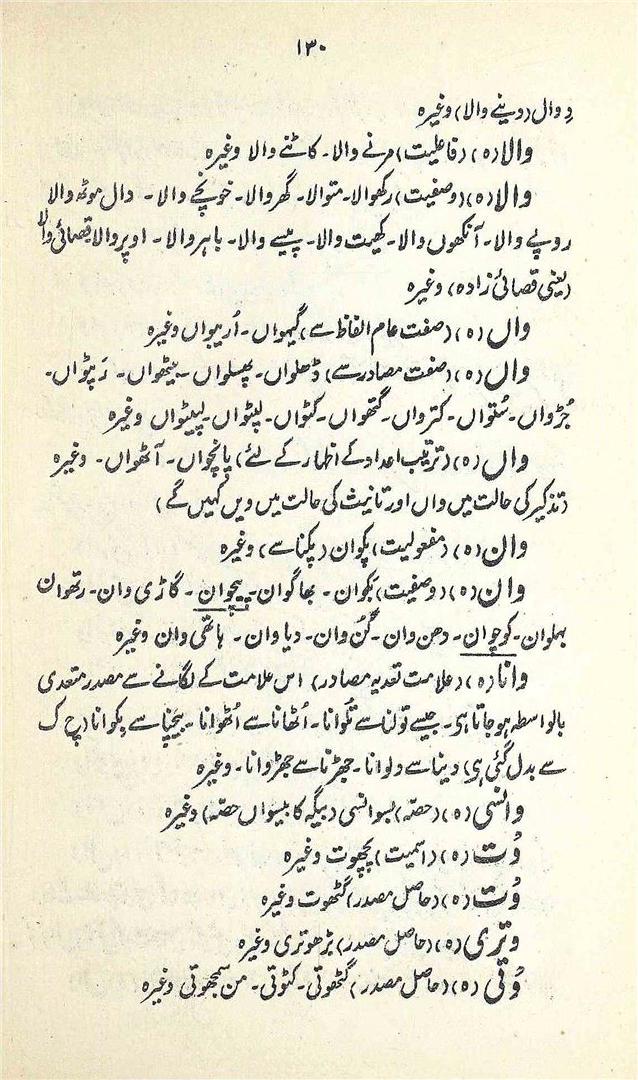 ۱۳۰
دِوال (دینے والا) وغیرہ
والا (ہ) (فاعلیت) مرنے والا۔ کاٹنے والا وغیرہ
والا (ہ) (وصفیت) رکھوالا۔ متوالا۔ گھر والا۔ خوپنچے والا۔ دال موٹھ والا
روپے والا۔ آنکھوں والا۔ کھیت والا۔ پیسے والا۔ باہر والا۔ اوپر والا قصائی والا
(یعنی قصائی زادہ) وغیرہ
واں (ہ) (صفت عام الفاظ سے) گیہواں۔ اُریواں وغیرہ
واں (ہ) (صفت مصادر سے) ڈھلواں۔ پھسلواں۔ بیٹھواں۔ رَپٹواں۔
جُڑواں۔ سُتواں۔ کترواں۔ گتھواں۔ کٹواں۔ لپٹواں۔ لپیٹواں وغیرہ
واں (ہ) (ترتیب اعداد کے اظہار کے لئے) پانچواں۔ آٹھواں۔ وغیرہ
(تذکیر کی حالت میں واں اور تانیث کی حالت میں ویں کہیں گے)
وان (ہ) (مفعولیت) پکوان (پکنا سے) وغیرہ
وان (ہ) (وصفیت) بکوان۔ بھاگوان۔ پیچوان۔ گاڑی وان۔ رتھوان
بہلوان۔ کوچوان۔ دھن وان۔ گُن وان۔ دیا وان۔ ہاتھی وان وغیرہ
وانا (ہ) (علامت تعدیہ مصادر) اس علامت کے لگانے سے مصدر متعدی
بالواسطہ ہو جاتا ہی۔ جیسے تولنا سے تُلوانا۔ اُٹھانا سے اُٹھوانا۔ بیچنا سے بکوانا (چ ک
سے بدل گئی ہی) دینا سے دلوانا۔ جھڑنا سے جھڑوانا۔ وغیرہ
وانسی (ہ) (حصّہ) بسوانسی (بیگہ کا بیسواں حصّہ) وغیرہ
وُت (ہ) (اسمیت) بچھوت وغیرہ
وُت (ہ) (حاصل مصدر) گٹھوت وغیرہ
وتری (ہ) (حاصل مصدر) بڑھوتری وغیرہ
وُتی (ہ) (حاصل مصدر) گٹھوتی۔ کٹوتی۔ من سمجھوتی وغیرہ